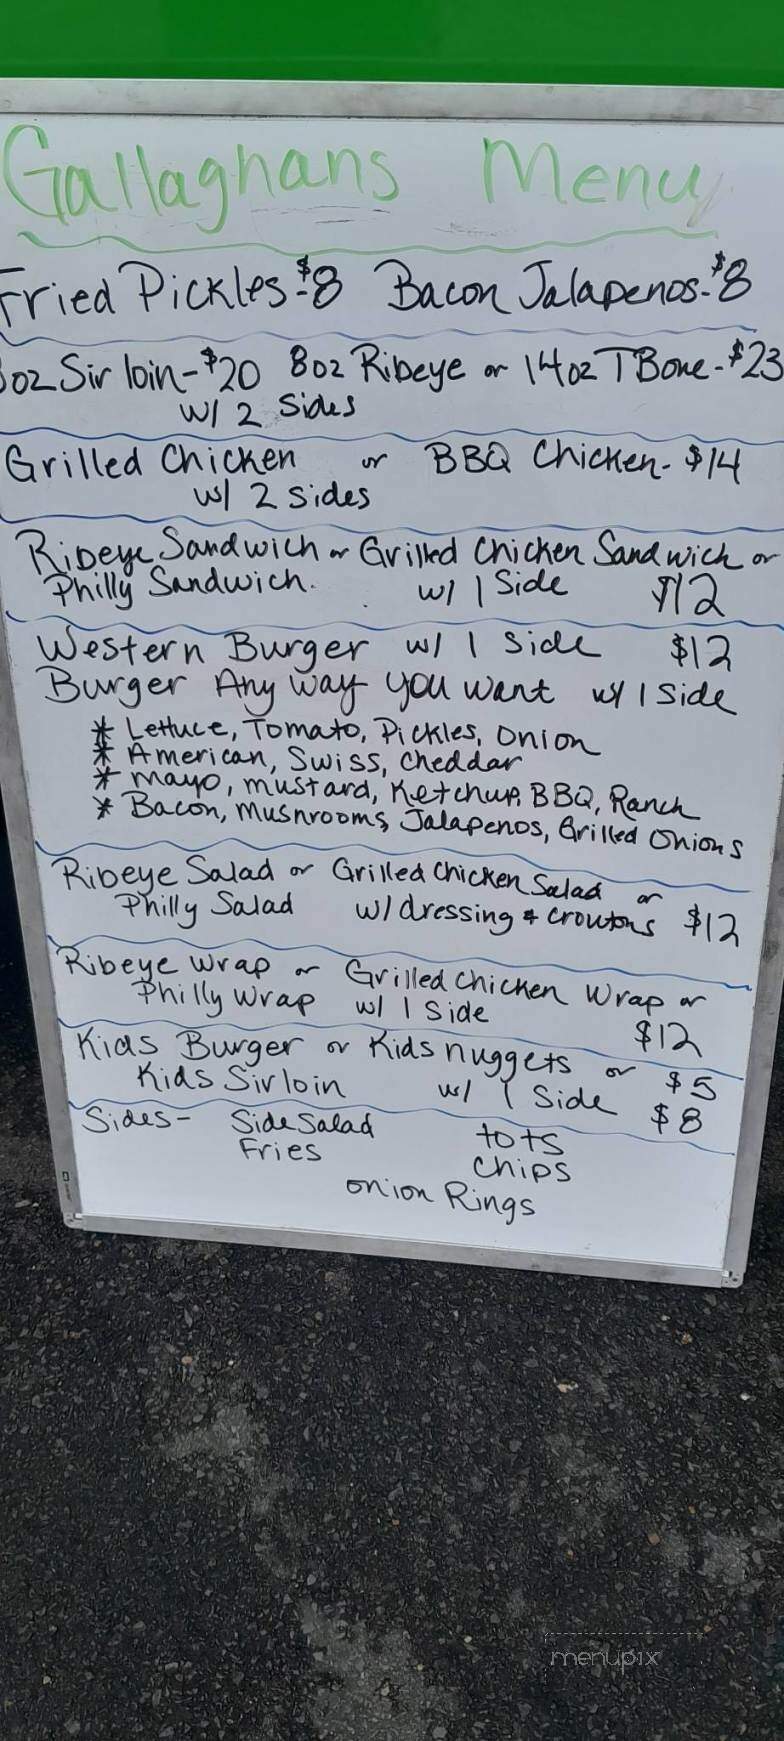 Gallaghans Menu
Fried Pickles-$8 Bacon Jalapenos-$8
8oz Sirloin-$20 8oz Ribeye or 14oz T Bone-$23
w/ 2 Sides
Grilled Chicken or BBQ Chicken-$14
w/ 2 sides
Ribeye Sandwich or Grilled Chicken Sandwich or
Philly Sandwich. w/ 1 Side $12
Western Burger w/ 1 Side $12
Burger Any way you want w/ 1 Side
* Lettuce, Tomato, Pickles, Onion
* American, Swiss, Cheddar
* mayo, mustard, Ketchup, BBQ, Ranch
* Bacon, Mushrooms, Jalapenos, Grilled Onions
Ribeye Salad or Grilled Chicken Salad or
Philly Salad w/ dressing & croutons $12
Ribeye Wrap or Grilled Chicken Wrap or
Philly Wrap w/ 1 Side $12
Kids Burger or Kids nuggets or $5
Kids Sirloin w/ 1 Side $8
Sides- Side Salad tots
Fries Chips
Onion Rings
menupix